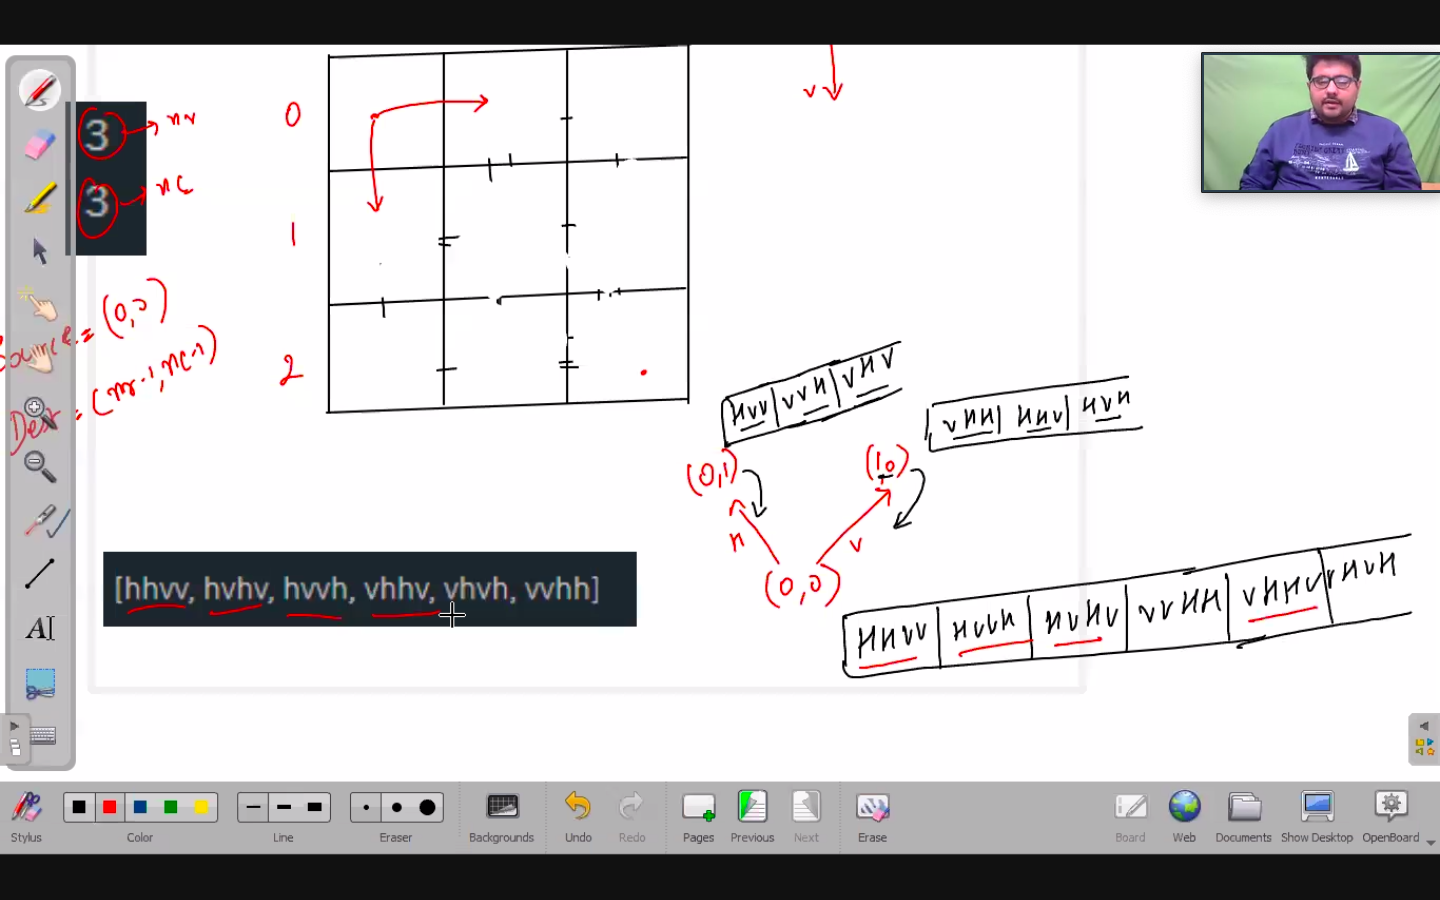 v
0
3 → nr
3 → nc
1
Source = (0,0)
Dest = (nr-1, nc-1)
2
HVV | VVH | VHV
VHH | HHV | HVH
(0,1)
(1,0)
H
V
(0,0)
[hhvv, hvhv, hvvh, vhhv, vhvh, vvhh]
HHVV | HVVH | HVHV | VVHH | VHHV | VHVH
Stylus
Color
Line
Eraser
Backgrounds
Undo
Redo
Pages
Previous
Next
Erase
Board
Web
Documents
Show Desktop
OpenBoard